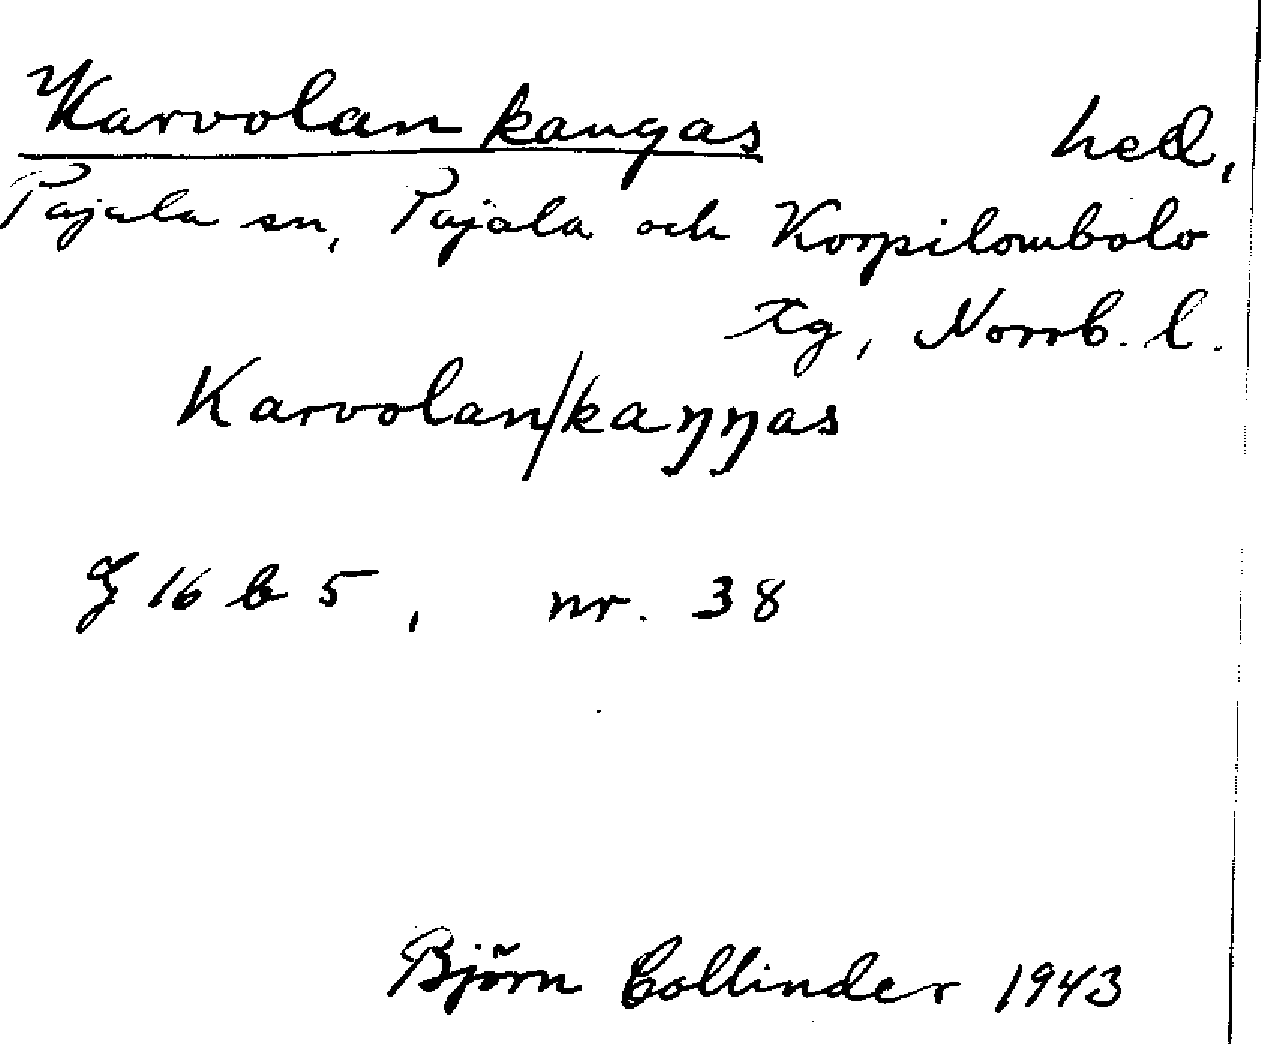 Karvolankangas hed,
Pajala sn, Pajala och Korpilombolo
tg, Norrb. l.
Karvolan/kaŋŋas
G 16 b 5, nr. 38
Björn Collinder 1943